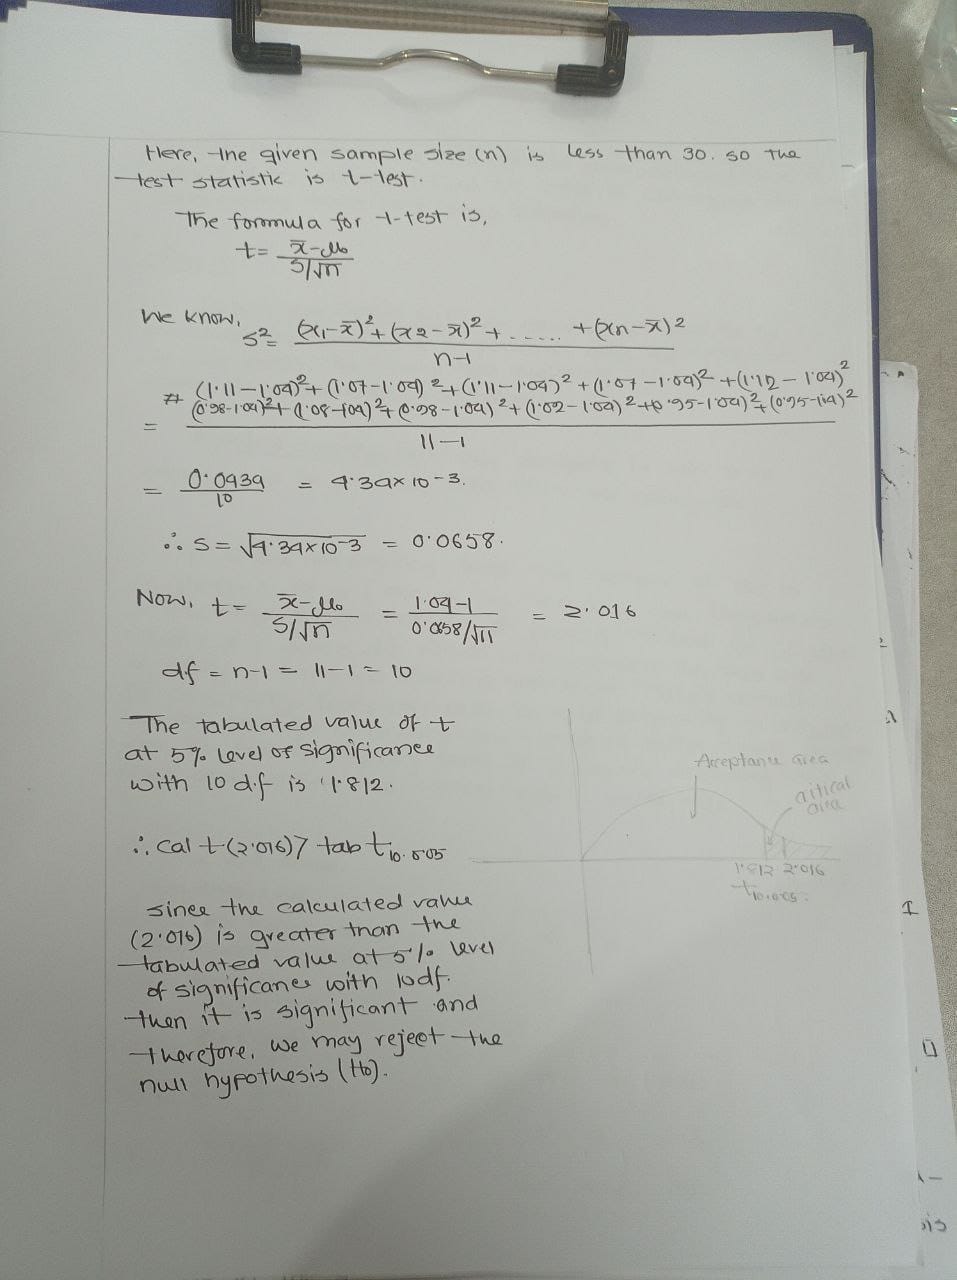 Here, the given sample size (n) is less than 30. so the
test statistic is t-test.
The formula for t-test is,
t = x̄-μ₀ / S/√n
We know,
S² = (x₁-x̄)² + (x2-x̄)² + ...... + (xn-x̄)² / n-1
(1.11-1.04)² + (1.07-1.04)² + (1.11-1.04)² + (1.07-1.04)² + (1.12-1.04)²
(0.98-1.04)² + (1.08-104)² + (0.98-1.04)² + (1.02-1.04)² + (0.95-1.04)² + (0.95-1.04)²
= / 11-1
= 0.0434 / 10 = 4.34×10-3.
∴ S = √4.34×10-3 = 0.0658.
Now, t = x̄-μ₀ / S/√n = 1.04-1 / 0.0658/√11 = 2.016
df = n-1 = 11-1 = 10
The tabulated value of t
at 5% level of significance
with 10 d.f is 1.812.
Acceptance area
critical
area
∴ cal t (2.016) > tab t10.0.05
1.812 2.016
t10.0.05.
since the calculated value
(2.016) is greater than the
tabulated value at 5% level
of significance with 10df.
then it is significant and
therefore, we may reject the
null hypothesis (H₀).